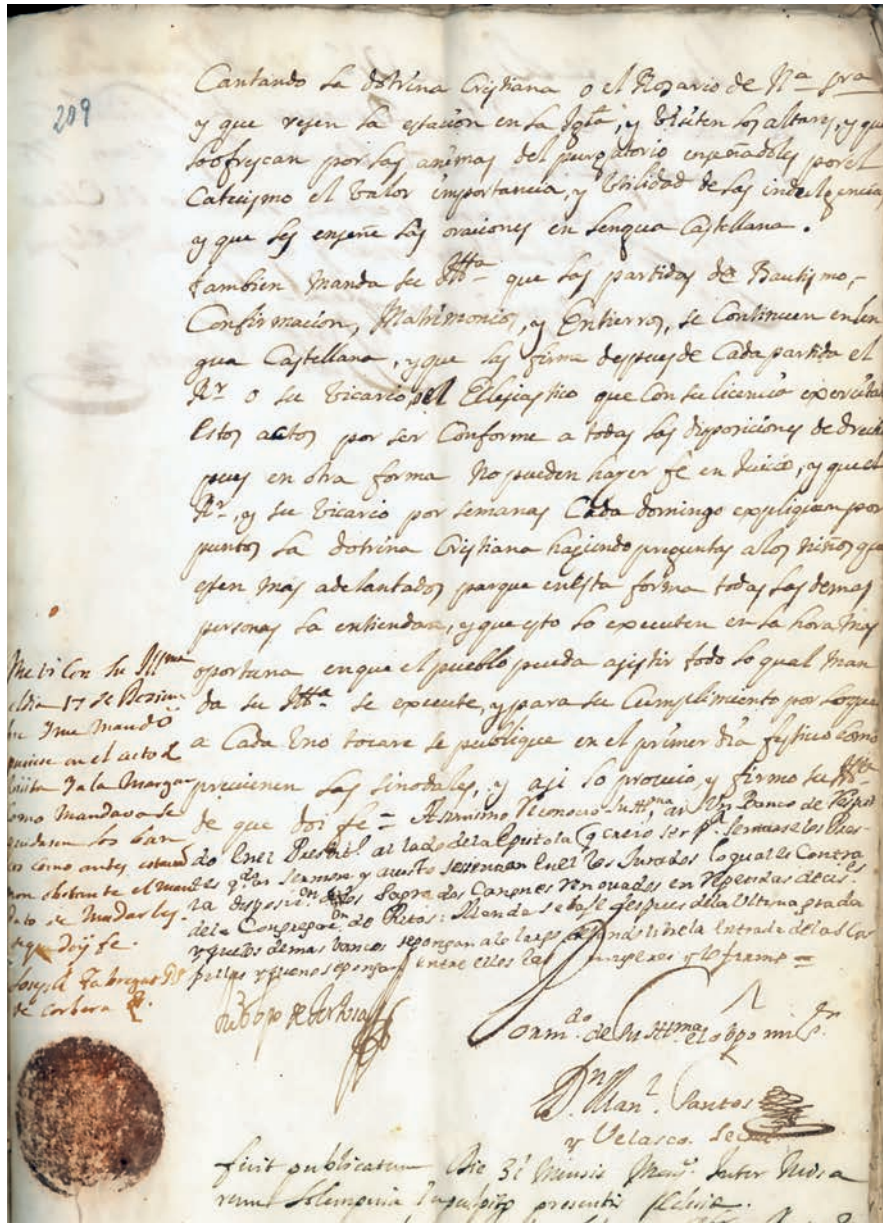 209
Cantando la dotrina Cristiana o el Rosario de Nª Srª
y que resen la estacion en la Iglª, y visiten los altares, y que
lo ofrescan por las animas del purgatorio enseñadoles por el
Catecismo el valor importancia, y Utilidad de las indulgencias
y que les enseñe las oraciones en lengua Castellana.
tambien manda su Illª que las partidas de Bautismo,
Confirmacion, Matrimonios, y Entierros, se Continuen en len
gua Castellana, y que las firma despues de Cada partida el
Rr o su vicario, el Eclesiastico que Con su licencia executare
estos actos por ser Conforme a todas las disposiciones de drecho
pues en otra forma No pueden haser fe en Juicio, y que el
Rr, y su vicario por semanas Cada domingo expliquen por
puntos la dotrina Cristiana hasiendo preguntas a los niños que
esten mas adelantados parque en esta forma todas las demas
personas la entiendan, y que esto lo executen en la hora mas
oportuna en que el pueblo pueda asistir todo lo qual man
da su Illª se execute, y para su Cumplimiento por lo que
a Cada Uno tocare se publique en el primer dia festivo como
previenen las sinodales, y asi lo proveio, y firmo su Illª
de que doi fe = Assimismo reconocio su Illma, ai Un Banco de respal
do En el Presbit.º al lado de la Epistola y
Sermon y se sientan En el los Jurados lo qual es Contra
la disposin de los Sagrados Canones renovados en repetidas decis
de la Congregacn de Ritos: Manda se baje despues de la Ultima grada
y que los demas bancos se pongan a lo largo dejando libre la Entrada de las Ca
pillas y que no se pongan entre ellos las Mugeres y lo firmo =
Me vi Con Su Illma
el dia 17 de
y me mandó
pusiese en el acto de
Visita y a la Margen
como Mandava se
quedasen los ban
cos como antes estavan
non obstante el man
dato de Mudarles.
de que doy fe.
Joseph Fabregas
de Corbera
obpo de Tortosa
Por mdo de su Illma el obpo mi Sr
Dn Manl. Santos
y Velasco Secro
fuit publicatum Die 31 Mensis Inter Missa
rum Solempnia In pulpito presentis Eclesie.